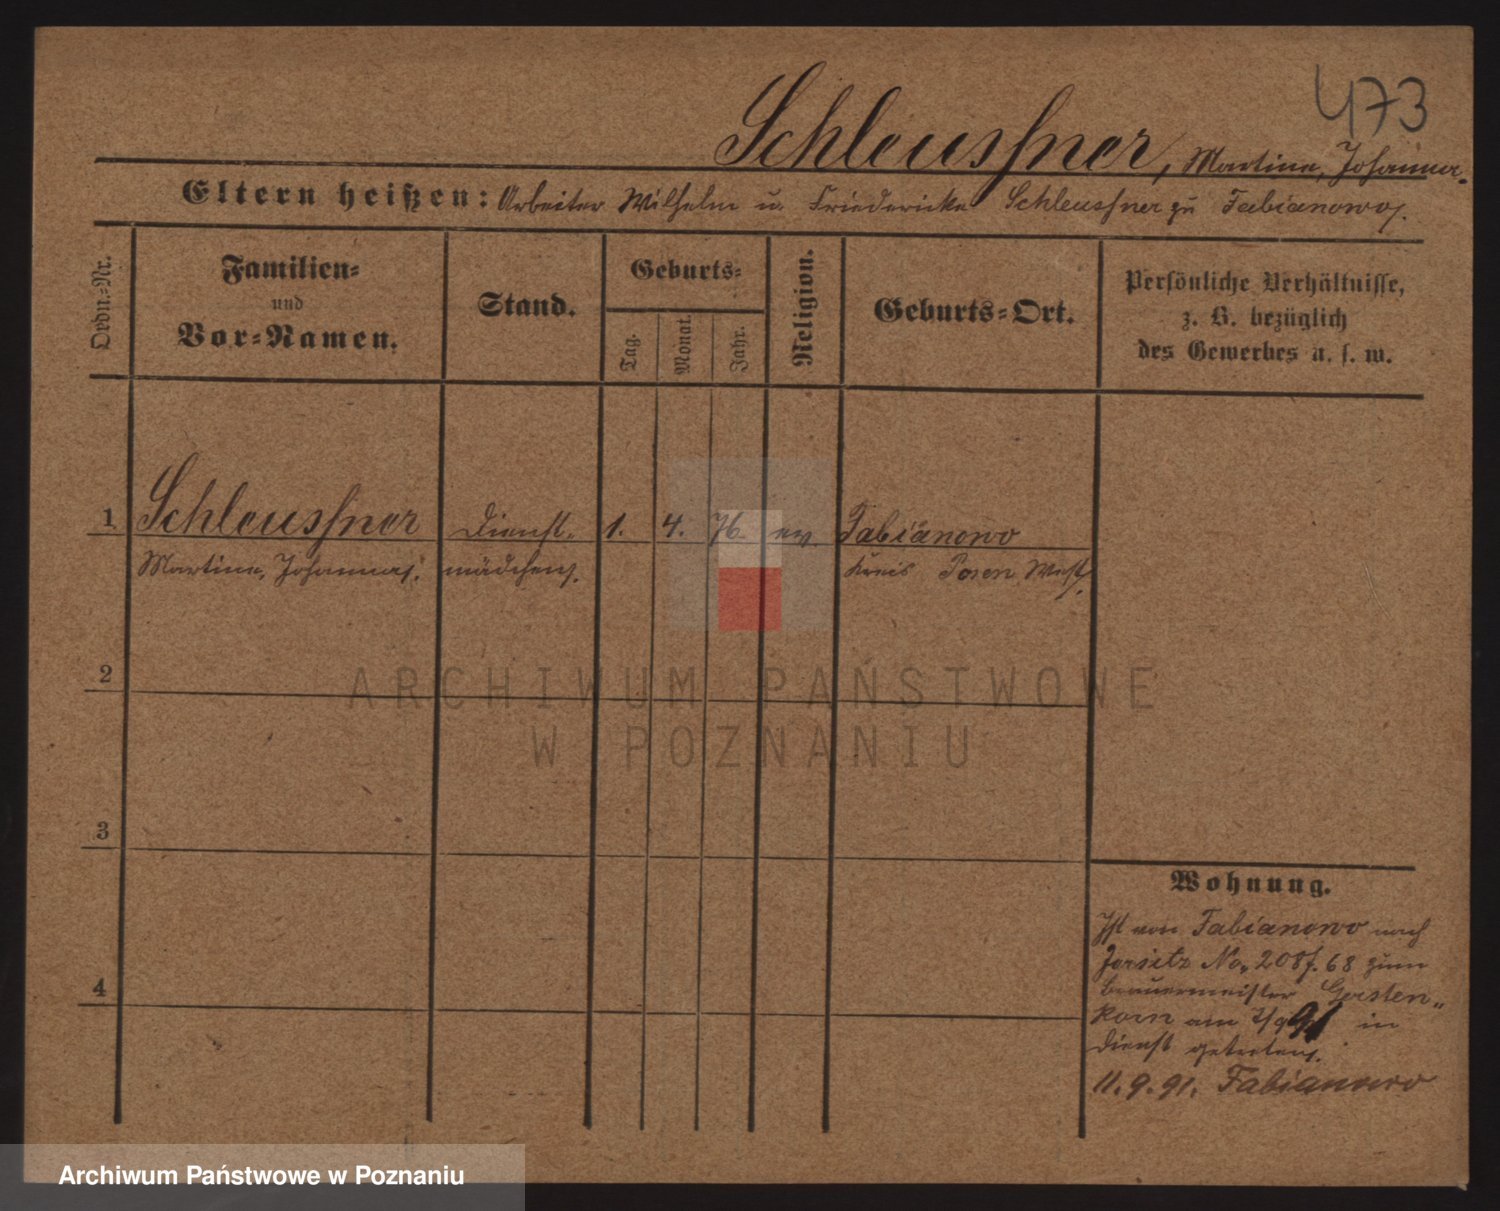 473
Schleusſner, Martina, Johanna.
Eltern heißen: Arbeiter Wilhelm u. Friedericke Schleusſner zu Fabianowo.
Ordn.-Nr.
Familien-
und
Vor-Namen.
Stand.
Geburts-
Tag.
Monat.
Jahr.
Religion.
Geburts-Ort.
Persönliche Verhältnisse,
z. B. bezüglich
des Gewerbes u. s. w.
1 Schleusſner Dienst- 1. 4. 76. ev. Fabianowo
Martina, Johanna. mädchen. Kreis Posen West.
2
ARCHIWUM PAŃSTWOWE
W POZNANIU
3
Wohnung.
Ist von Fabianowo nach
Jersitz No. 208f. 68 zum
4
Brauermeister Gersten-
korn am in
Dienst getreten.
11.9.91. Fabianowo
Archiwum Państwowe w Poznaniu